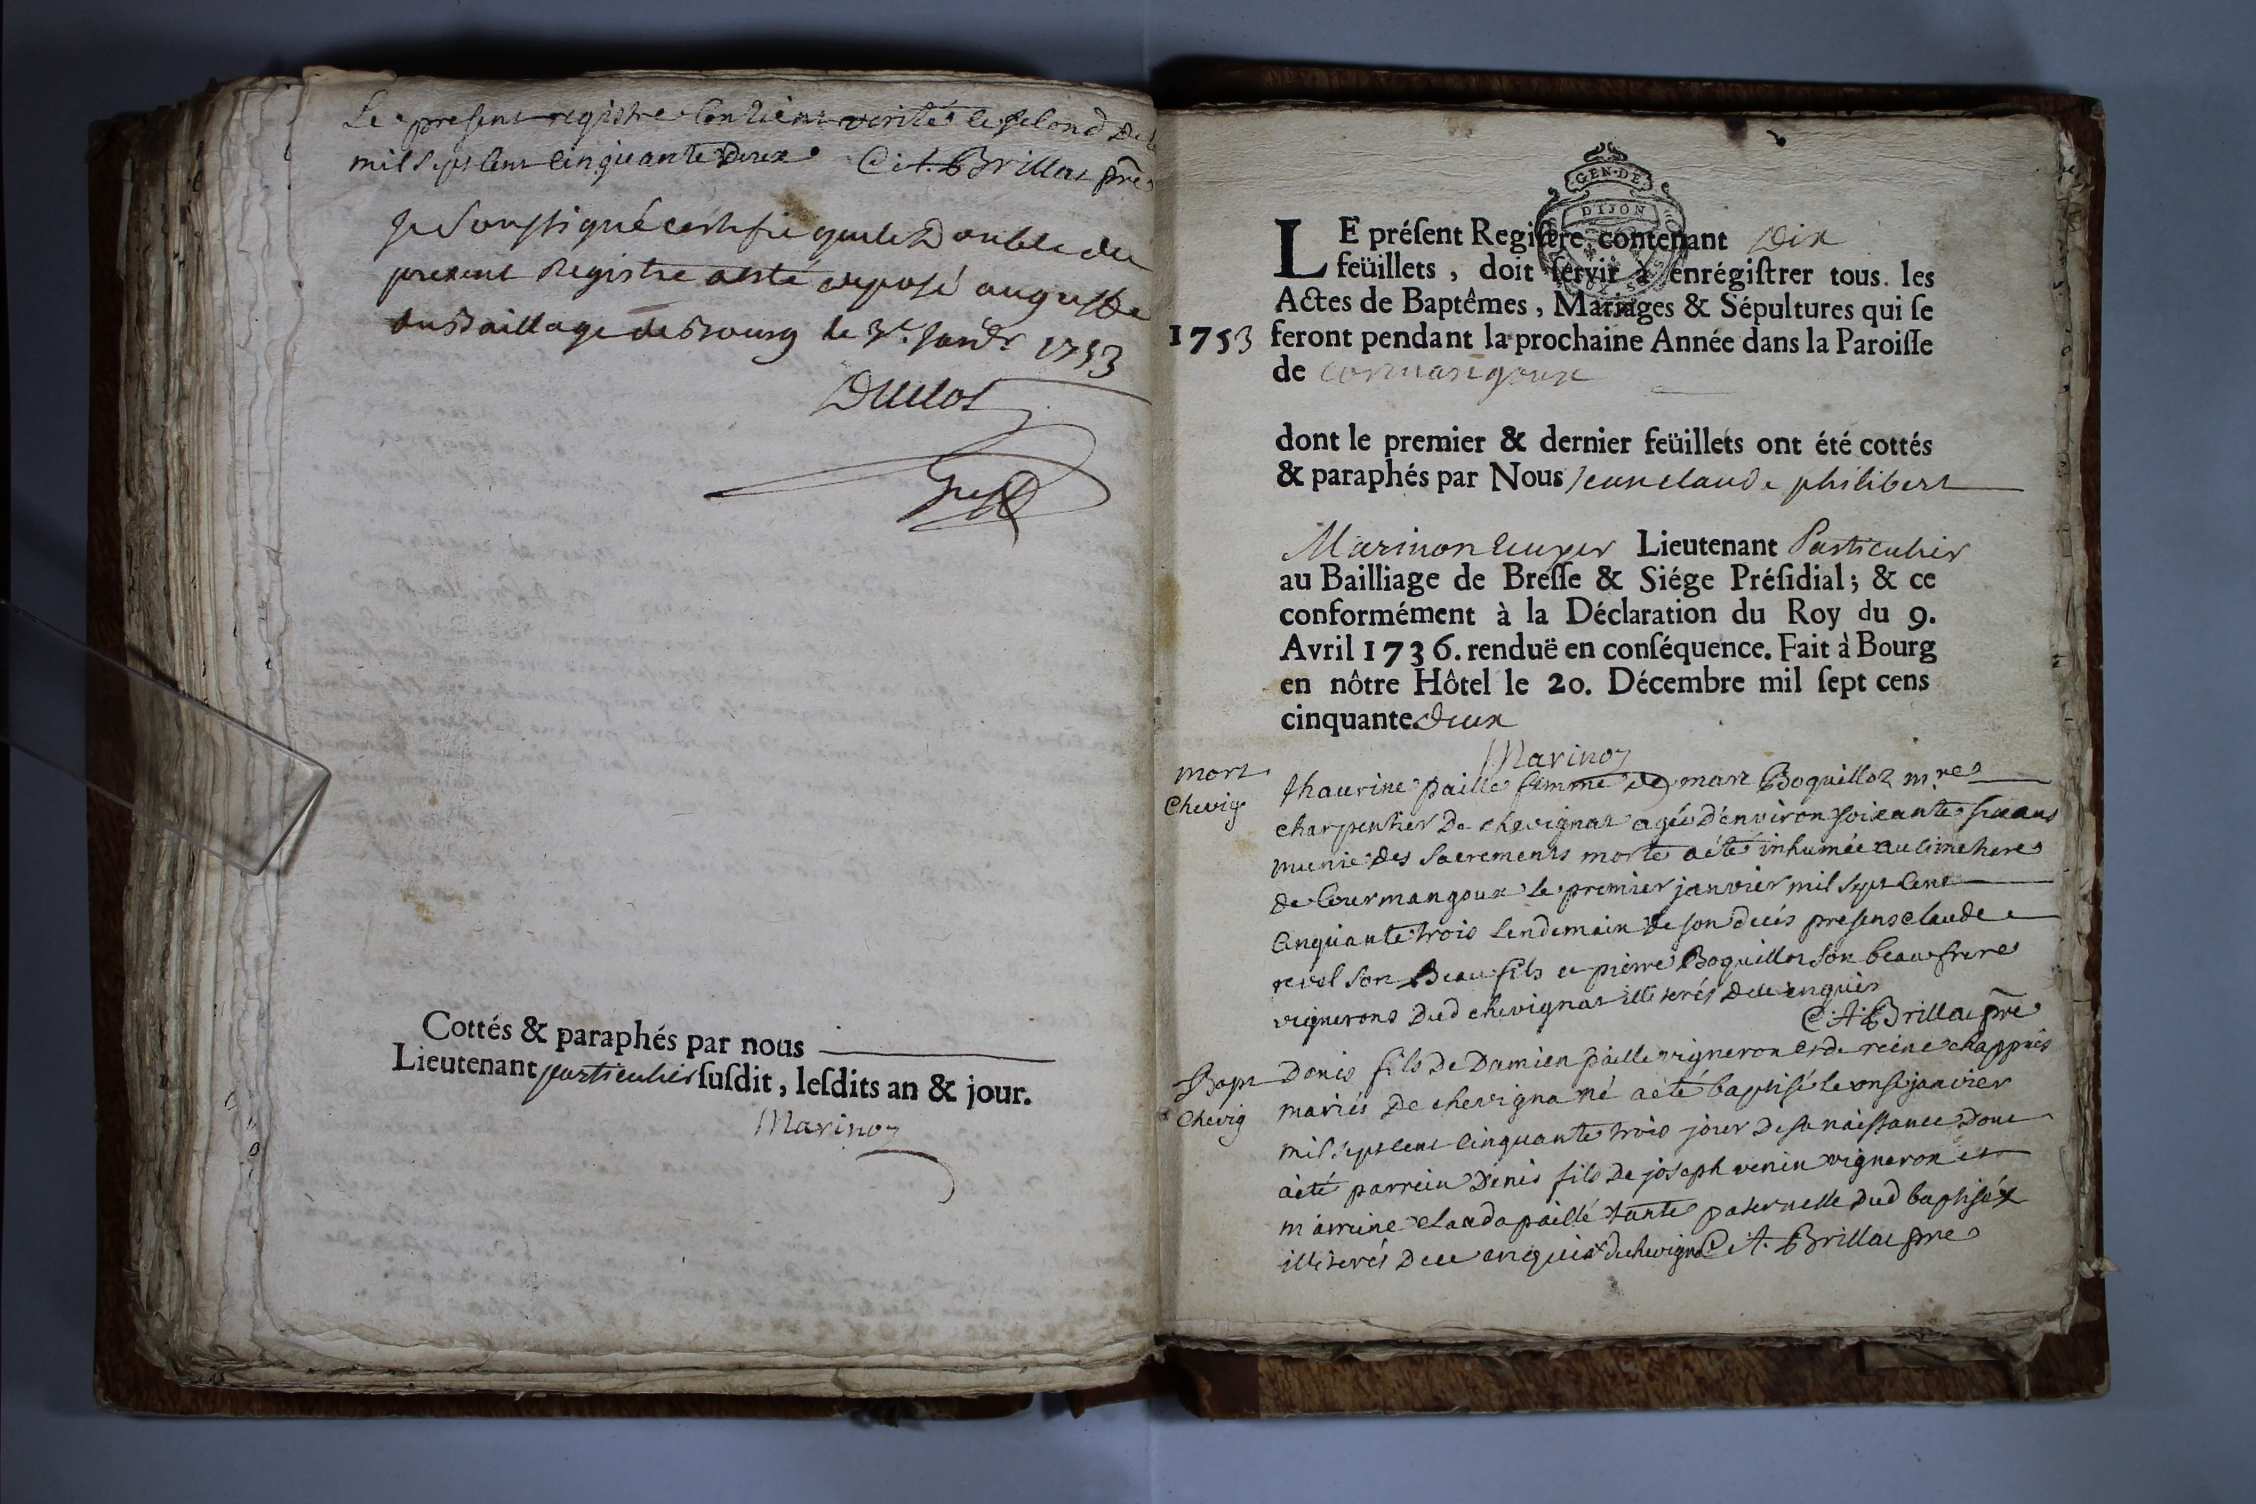 Le present registre Contient verité le second de
mil sept cent cinquante deux C: A: Brillat pre
Je soussigné certifie que le Double du
present Registre a esté deposé au greffe
du Baillage de Bourg le 3e Janvr 1753
Duclos
Cottés & paraphés par nous
Lieutenant particulier susdit, lesdits an & jour.
Marinon
GEN·DE
DIJON
LE présent Registre contenant Dix
feüillets, doit servir à enrégistrer tous. les
Actes de Baptêmes, Mariages & Sépultures qui se
1753 feront pendant la prochaine Année dans la Paroisse
de Cormangoux
dont le premier & dernier feüillets ont été cottés
& paraphés par Nous Jean claude philibert
Marinon Ecuyer Lieutenant Particulier
au Bailliage de Bresse & Siége Présidial; & ce
conformément à la Déclaration du Roy du 9.
Avril 1736. renduë en conséquence. Fait à Bourg
en nôtre Hôtel le 20. Décembre mil sept cens
cinquante deux
Marinon
mort
Chevig
paille femme de marc Boquillot m.re
charpentier De chevignat agée D'environ soixante six ans
munie des Sacrements morte a été inhumée au cimetiere
de Courmangoux le premier janvier mil sept cent
cinquante trois lendemain de son decés presens claude
revel son Beau fils et pierre Boquillot son beau frere
vignerons dud chevignat illiterés de ce enquis
C: A: Brillat pre
Bapt
Chevig
Denis fils de Damien paille vigneron et de reine chappuis
mariés De chevigna né a été baptisé le onse janvier
mil sept cent cinquante trois jour de sa naissance dont
a été parrein Denis fils de joseph venin vigneron et
marreine claud&a paille tante paternelle dud baptisé x
illiterés De ce enquis x de chevigna C: A: Brillat pre